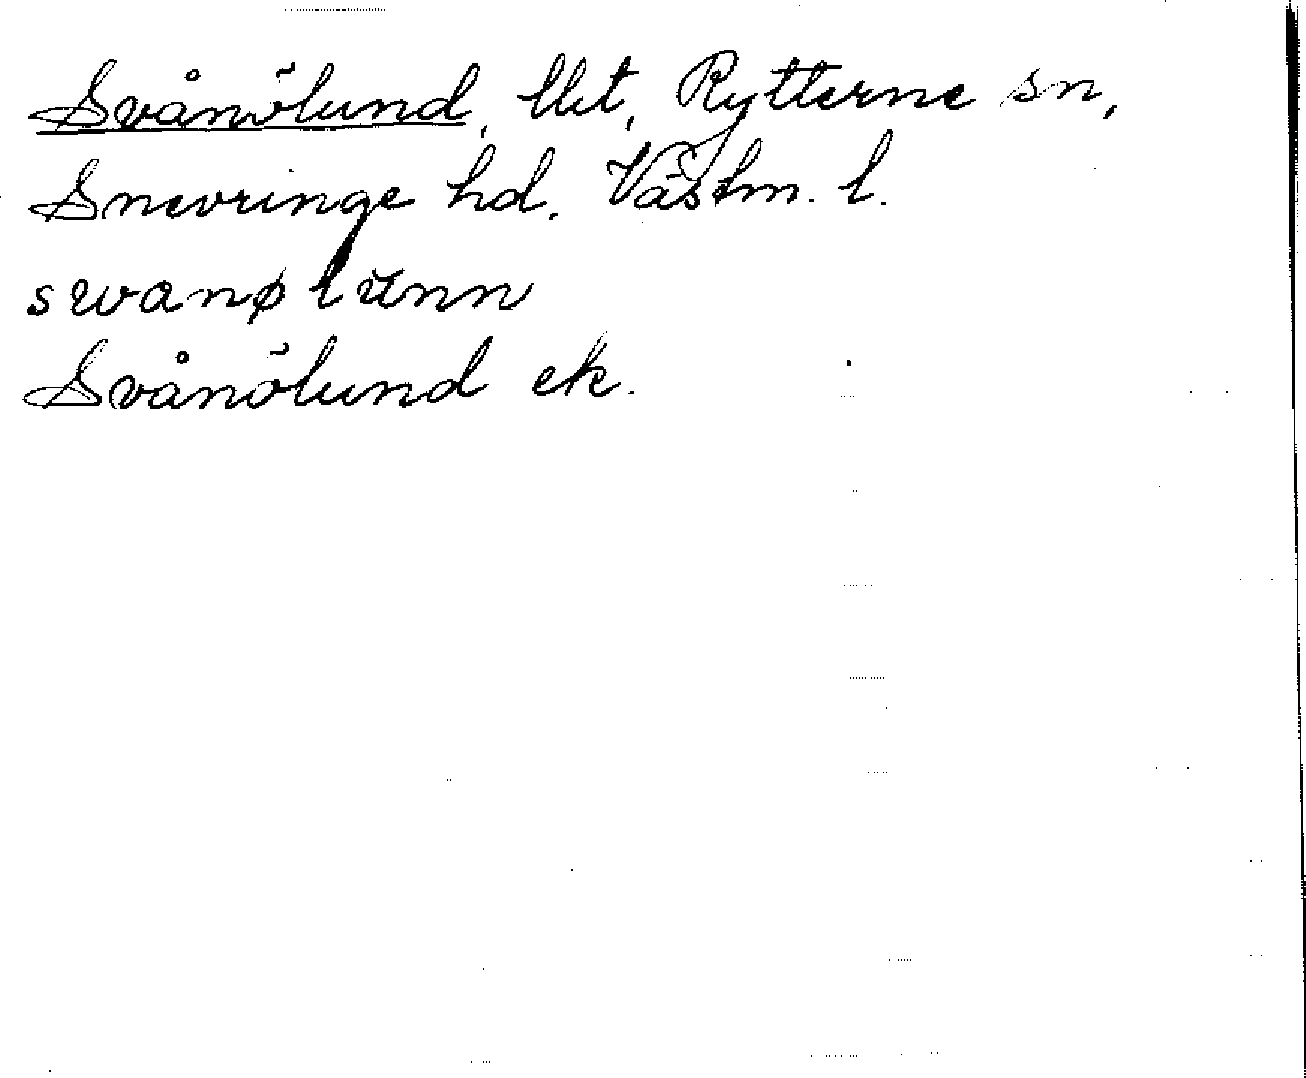 Svånölund, llt, Rytterne sn,
Snevringe hd. Västm. l.
swanølŭnn
Svånölund ek.